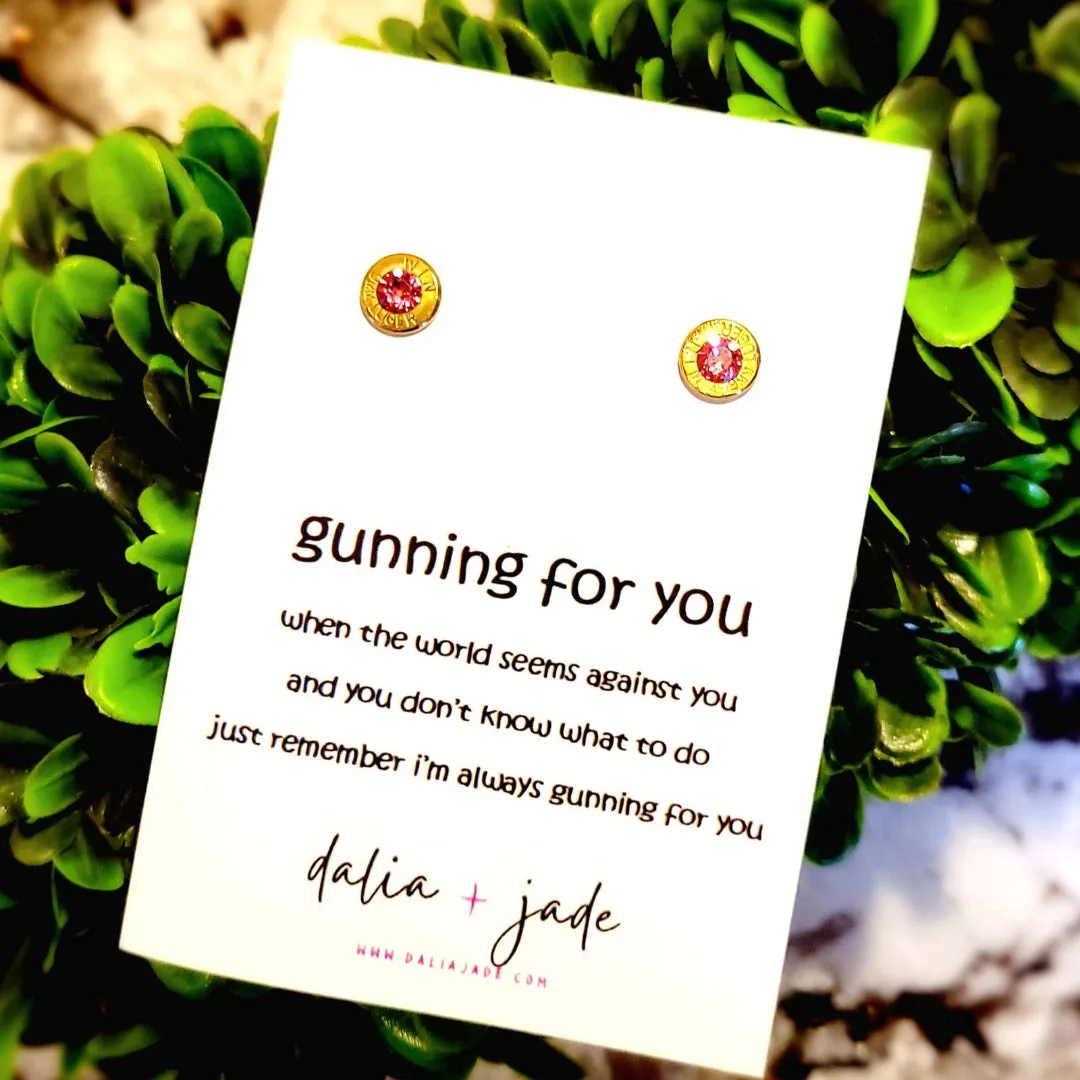 WIN
LUGER
LUGER
gunning for you
when the world seems against you
and you don't know what to do
just remember i'm always gunning for you
dalia + jade
WWW.DALIAJADE.COM